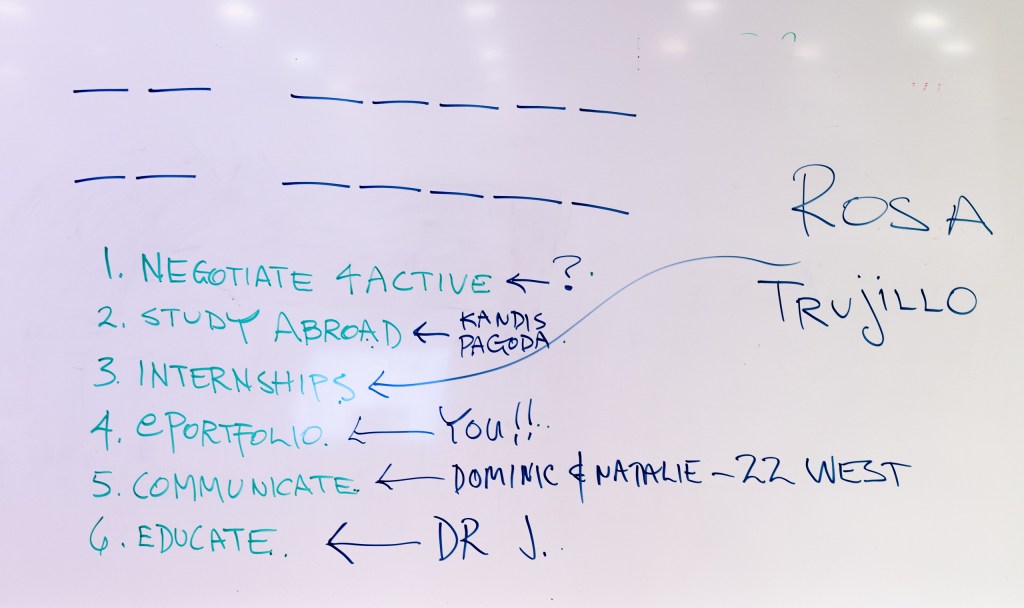 ROSA
TRUJILLO
1. NEGOTIATE 4 ACTIVE ← ?
2. STUDY ABROAD ← KANDIS
PAGODA
3. INTERNSHIPS ←
4. ePORTFOLIO. ← YOU!!
5. COMMUNICATE. ← DOMINIC & NATALIE - 22 WEST
6. EDUCATE. ← DR J.